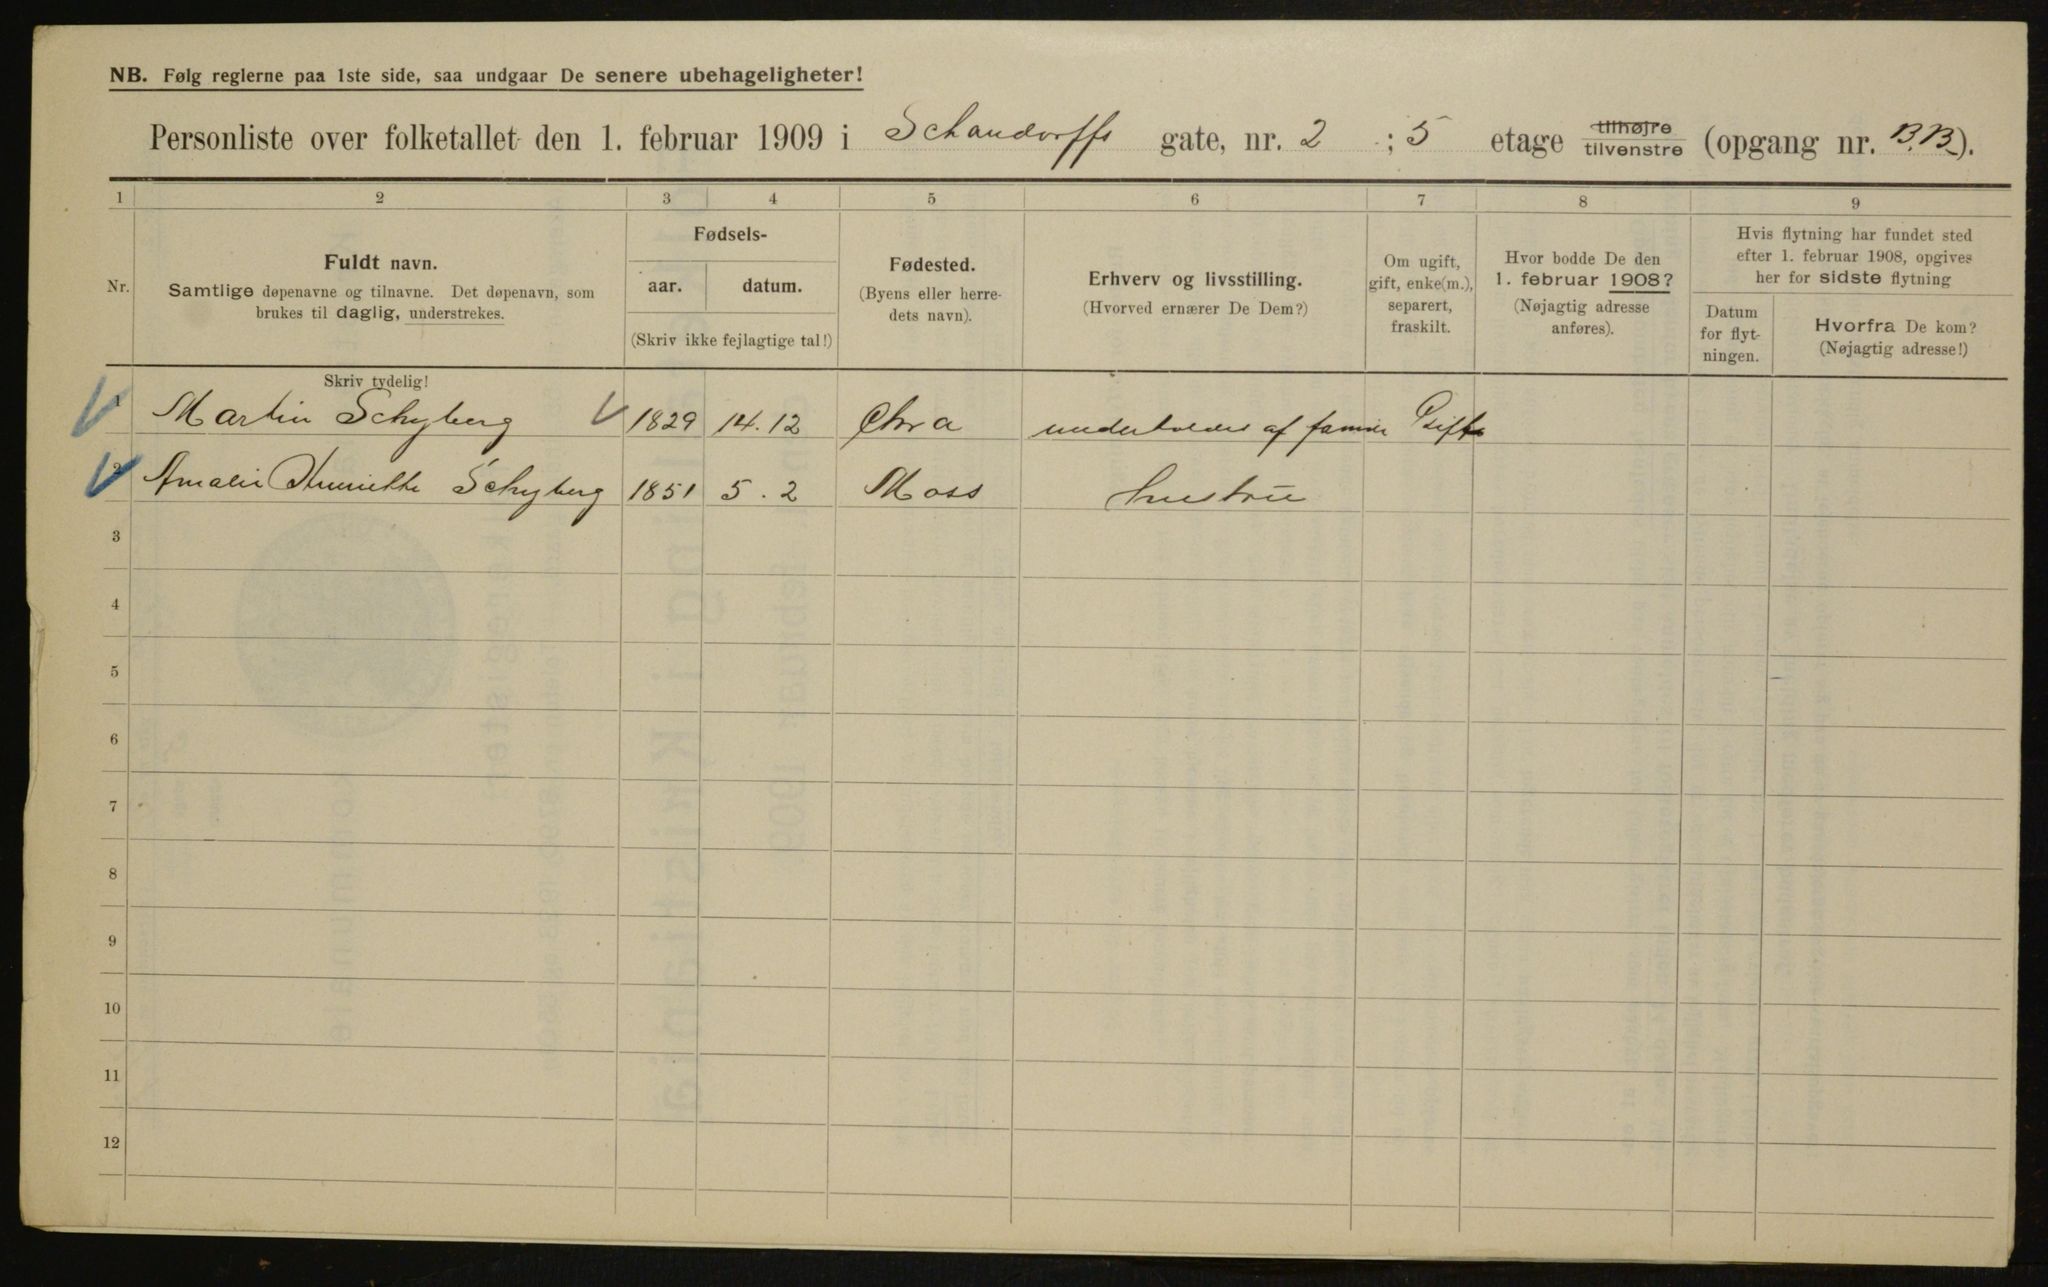 NB. Følg reglerne paa 1ste side, saa undgaar De senere ubehageligheter!
Personliste over folketallet den 1. februar 1909 i Schandorffs gate, nr. 2 ; 5 etage tilhøjre tilvenstre (opgang nr. B.B).
1 2 3 4 5 6 7 8 9
Nr.
Fuldt navn.
Samtlige døpenavne og tilnavne. Det døpenavn, som
brukes til daglig, understrekes.
Fødsels-
aar. datum.
(Skriv ikke fejlagtige tal!)
Fødested.
(Byens eller herre-
dets navn).
Erhverv og livsstilling.
(Hvorved ernærer De Dem?)
Om ugift,
gift, enke(m.),
separert,
fraskilt.
Hvor bodde De den
1. februar 1908?
(Nøjagtig adresse
anføres).
Hvis flytning har fundet sted
efter 1. februar 1908, opgives
her for sidste flytning
Datum
for flyt-
ningen.
Hvorfra De kom?
(Nøjagtig adresse!)
Skriv tydelig!
1 Martin Schyberg 1829 14.12 Chra underholdes af Gift
2 Amalie Henriette Schyberg 1851 5.2 Moss hustru
3
4
5
6
7
8
9
10
11
12